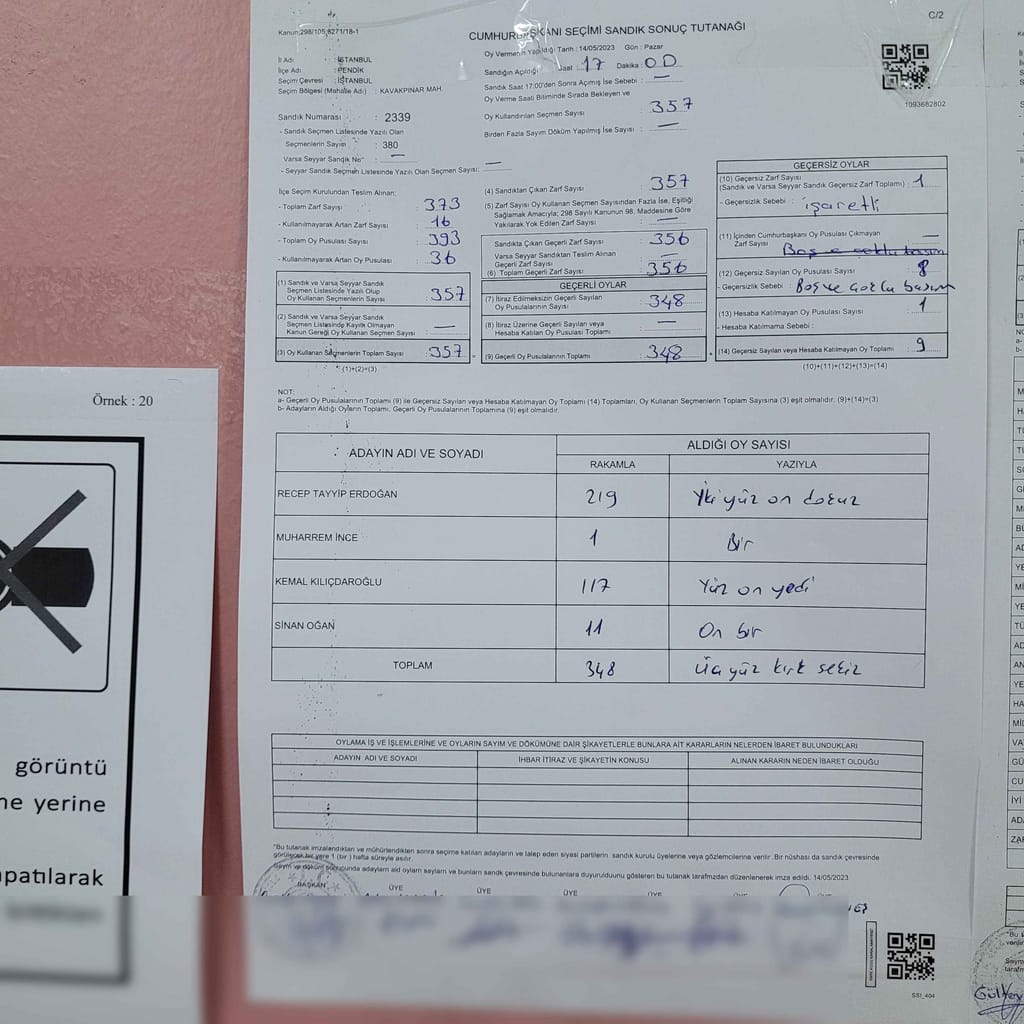 Kanun:298/105,6271/18-1
C/2
CUMHURBAŞKANI SEÇİMİ SANDIK SONUÇ TUTANAĞI
İl Adı : İSTANBUL
İlçe Adı : PENDİK
Seçim Çevresi : İSTANBUL
Seçim Bölgesi (Mahalle Adı) : KAVAKPINAR MAH.
Oy Vermenin Yapıldığı Tarih : 14/05/2023 Gün : Pazar
Sandığın Açıldığı Saat : 17 Dakika : 00
Sandık Saat 17:00'den Sonra Açılmış İse Sebebi : —
Oy Verme Saati Bitiminde Sırada Bekleyen ve
Oy Kullandırılan Seçmen Sayısı : 357
Birden Fazla Sayım Döküm Yapılmış İse Sayısı : —
1093682802
Sandık Numarası : 2339
- Sandık Seçmen Listesinde Yazılı Olan
Seçmenlerin Sayısı : 380
Varsa Seyyar Sandık No : —
- Seyyar Sandık Seçmen Listesinde Yazılı Olan Seçmen Sayısı: —
İlçe Seçim Kurulundan Teslim Alınan;
- Toplam Zarf Sayısı : 373
- Kullanılmayarak Artan Zarf Sayısı : 16
- Toplam Oy Pusulası Sayısı : 393
- Kullanılmayarak Artan Oy Pusulası : 36
(1) Sandık ve Varsa Seyyar Sandık
Seçmen Listesinde Yazılı Olup
Oy Kullanan Seçmenlerin Sayısı : 357
(2) Sandık ve Varsa Seyyar Sandık
Seçmen Listesinde Kayıtlı Olmayan
Kanun Gereği Oy Kullanan Seçmen Sayısı : —
(3) Oy Kullanan Seçmenlerin Toplam Sayısı : 357
(1)+(2)=(3)
(4) Sandıktan Çıkan Zarf Sayısı : 357
(5) Zarf Sayısı Oy Kullanan Seçmen Sayısından Fazla İse, Eşitliği
Sağlamak Amacıyla; 298 Sayılı Kanunun 98. Maddesine Göre
Yakılarak Yok Edilen Zarf Sayısı : —
Sandıkta Çıkan Geçerli Zarf Sayısı : 356
Varsa Seyyar Sandıktan Teslim Alınan
Geçerli Zarf Sayısı : —
(6) Toplam Geçerli Zarf Sayısı : 356
GEÇERLİ OYLAR
(7) İtiraz Edilmeksizin Geçerli Sayılan
Oy Pusulalarının Sayısı : 348
(8) İtiraz Üzerine Geçerli Sayılan veya
Hesaba Katılan Oy Pusulası Toplamı : —
(9) Geçerli Oy Pusulalarının Toplamı : 348
GEÇERSİZ OYLAR
(10) Geçersiz Zarf Sayısı
(Sandık ve Varsa Seyyar Sandık Geçersiz Zarf Toplamı) : 1
- Geçersizlik Sebebi : işaretli
(11) İçinden Cumhurbaşkanı Oy Pusulası Çıkmayan
Zarf Sayısı : —
(12) Geçersiz Sayılan Oy Pusulası Sayısı : 8
- Geçersizlik Sebebi : Boş ve çoklu basım
(13) Hesaba Katılmayan Oy Pusulası Sayısı : 1
- Hesaba Katılmama Sebebi :
(14) Geçersiz Sayılan veya Hesaba Katılmayan Oy Toplamı : 9
(10)+(11)+(12)+(13)=(14)
NOT:
a- Geçerli Oy Pusulalarının Toplamı (9) ile Geçersiz Sayılan veya Hesaba Katılmayan Oy Toplamı (14) Toplamları, Oy Kullanan Seçmenlerin Toplam Sayısına (3) eşit olmalıdır. (9)+(14)=(3)
b- Adayların Aldığı Oyların Toplamı, Geçerli Oy Pusulalarının Toplamına (9) eşit olmalıdır.
ADAYIN ADI VE SOYADI
ALDIĞI OY SAYISI
RAKAMLA YAZIYLA
RECEP TAYYİP ERDOĞAN 219 İki yüz on dokuz
MUHARREM İNCE 1 Bir
KEMAL KILIÇDAROĞLU 117 Yüz on yedi
SİNAN OĞAN 11 On bir
TOPLAM 348 Üç yüz kırk sekiz
OYLAMA İŞ VE İŞLEMLERİNE VE OYLARIN SAYIM VE DÖKÜMÜNE DAİR ŞİKAYETLERLE BUNLARA AİT KARARLARIN NELERDEN İBARET BULUNDUKLARI
ADAYIN ADI VE SOYADI İHBAR İTİRAZ VE ŞİKAYETİN KONUSU ALINAN KARARIN NEDEN İBARET OLDUĞU
"Bu tutanak imzalandıktan ve mühürlendikten sonra seçime katılan adayların ve talep eden siyasi partilerin sandık kurulu üyelerine veya gözlemcilerine verilir. Bir nüshası da sandık çevresinde
görülecek bir yere 1 (bir) hafta süreyle asılır.
Sayım ve döküm sonucunda adayların ald oyların sayların ve bunların sandık çevresinde bulunanlara duyurulduğunu gösteren bu tutanak tarafımızdan düzenlenerek imza edildi. 14/05/2023
BAŞKAN ÜYE ÜYE ÜYE ÜYE
SS1_404
Örnek : 20
görüntü
ne yerine
apatılarak